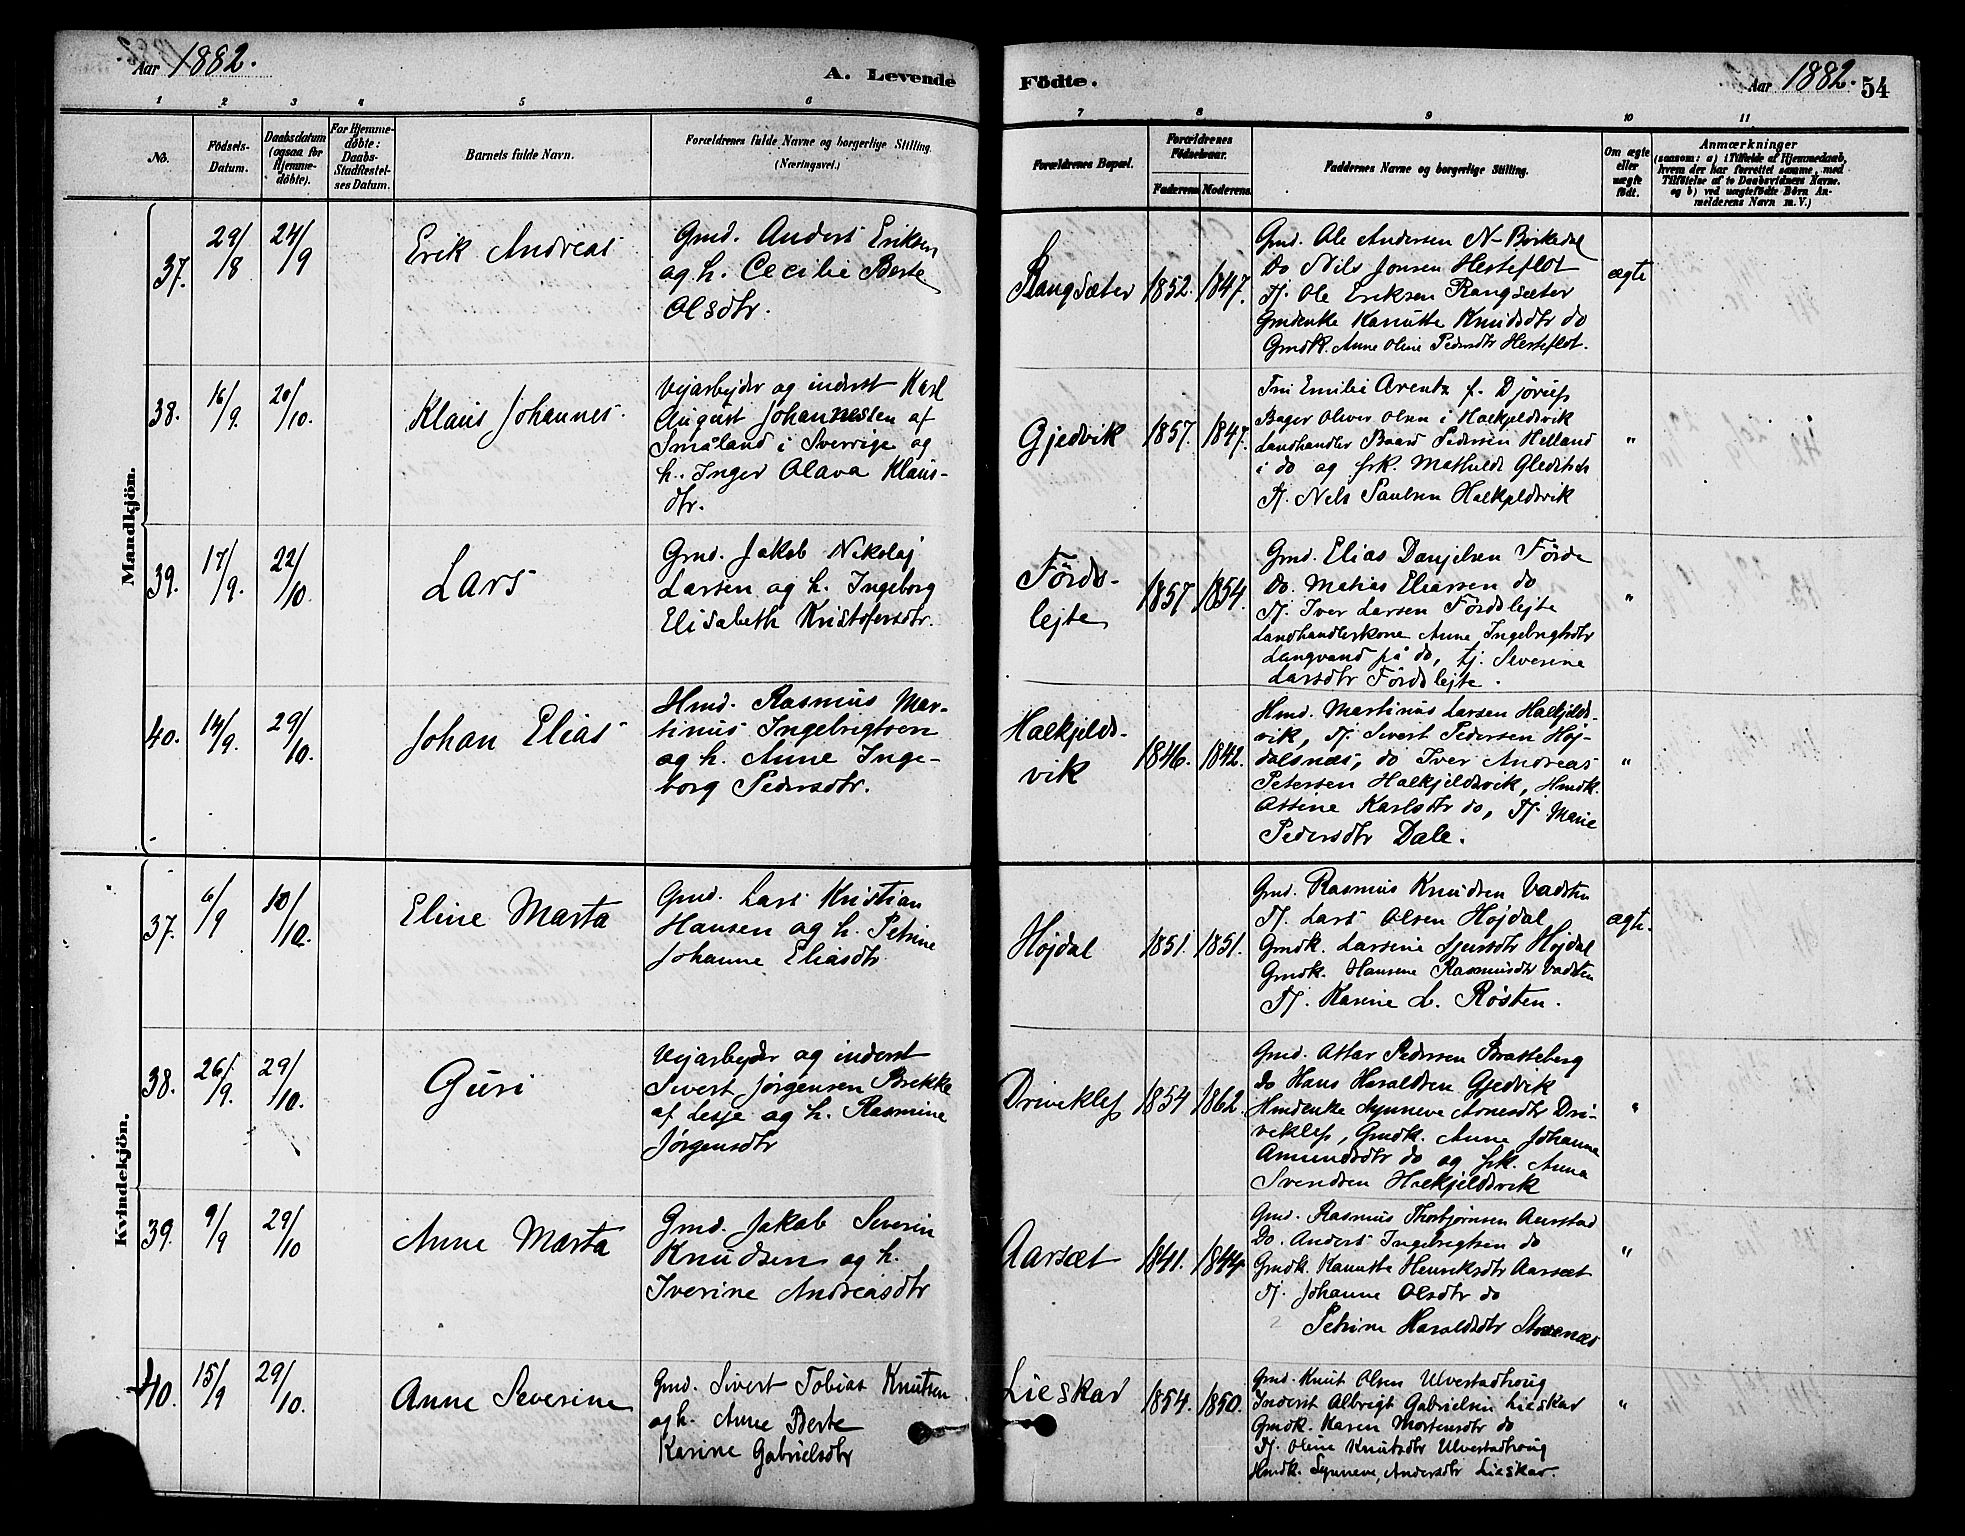 Aar 1882.
A. Levende
Födte.
Aar 1882.
54
1
2
3
4
5
6
7
8
9
10
11
No.
Fødsels-
Datum.
Daabsdatum
(ogsaa for
Hjemme-
døbte).
For Hjemme-
døbte:
Daabs-
Stadfæstel-
ses Datum.
Barnets fulde Navn.
Forældrenes fulde Navne og borgerlige Stilling.
(Næringsvei.)
Forældrenes Bopæl.
Forældrenes
Fødselsaar.
Faderens
Moderens.
Faddernes Navne og borgerlige Stilling.
Om ægte
eller
uægte
født.
Anmærkninger
(saasom: a) i Tilfælde af Hjemmedaab,
hvem der har forrettet samme, med
Tilføielse af to Daabsvidners Navne.
og b) ved uægtefødte Børn An-
melderens Navn m. V.)
Mandkjön.
37.
29/8
24/9
Erik Andreas
Gmd. Anders Eriksen
og h. Cecilie Berte
Olsdtr.
Rangsæter
1852.
1847.
Gmd. Ole Andersen N-Børkedal
Do Nils Jonsen Hesteflot
Tj. Ole Eriksen Rangsæter
Gmdenke Kanutte Knudsdtr do
Gmdk. Anne Oline Pedersdtr Hesteflot.
ægte
38.
16/9.
20/10.
Klaus Johannes.
Vejarbejder og inderst Karl
August Johannesen af
Småland i Sverrige og
h. Inger Olava Klaus-
dtr.
Gjedvik
1857.
1847.
Fru Emilie Arentz f. Djørup
Bager Oliver Olsen i Halkjeldsvik
Landhandler Baard Pedersen Helland
i do og frk. Mathilde Gleditsch
Tj. Nels Paulsen Halkjeldsvik
"
39.
17/9.
22/10.
Lars
Gmd. Jakob Nikolaj
Larsen og h. Ingeborg
Elisabeth Kristofersdtr.
Førds-
lejte
1857
1854.
Gmd. Elias Danjelsen Førde
Do. Matias Eliassen do
Tj. Iver Larsen Førdslejte
Landhandlerkone Anne Ingebrigtsdtr
Langvand på do, tj. Severine
Larsdtr Førdslejte.
"
40.
14/9.
29/10.
Johan Elias
Hmd. Rasmus Mar-
tinus Ingebrigtsen
og h. Anne Inge-
borg Pedersdtr.
Halkjelds-
vik
1846.
1842.
Hmd. Martinus Larsen Halkjelds-
vik, Tj. Sivert Pedersen Høj-
dalsnæs, do Iver Andreas
Petersen Halkjeldsvik, Hmdk.
Attine Karlsdtr do, Tj. Marie
Pedersdtr Dale.
"
Kvindekjön.
37.
6/9
10/10.
Eline Marta
Gmd. Lars Kristian
Hansen og h. Petrine
Johanne Eliasdtr
Højdal
1851.
1851.
Gmd. Rasmus Knudsen Vadsten
Tj. Lars Olsen Højdal
Gmdk. Larsine Sjursdtr Højdal
Gmdk. Hansene Rasmusdtr Vadsten
Tj. Karine L. Røsten.
ægte.
38.
26/9.
29/10.
Guri
Vejarbejder og inderst
Sivert Jørgensen Brekke
af Lesje og h. Rasmine
Jørgensdtr
Driveklep
1854
1862.
Gmd. Attar Pedersen Bratteberg
Do Hans Haraldsen Gjedvik
Hmdenke Synneve Arnesdtr Dri-
veklep, Gmdk. Anne Johanne
Amundsdtr do og frk. Anna
Svendsen Halkjeldsvik
"
39.
9/9
29/10
Anne Marta
Gmd. Jakob Severin
Knudsen og h.
Iverine Andreasdtr
Aarsæt
1841.
1844
Gmd. Rasmus Thorbjørnsen Aurstad
Do. Anders Ingebrigtsen do
Gmdk. Kanutte Henriksdtr Aarsæt
Tj. Johanne Olsdtr do
Petrine Haraldsdtr Storenæs
"
40.
15/9
29/10.
Anne Severine
Gmd. Sivert Tobias Knutsen
og h. Anne Berte
Karine Gabrielsdtr
Lieskar
1854.
1850.
Gmd. Knut Olsen Ulvestadhoug
Inderst Albrigt Gabrielsen Lieskar
Gmdk. Karen Mortensdtr do
Tj. Oline Knutsdtr Ulvestadhoug
Hmdk. Synneve Andersdtr Lieskar.
"